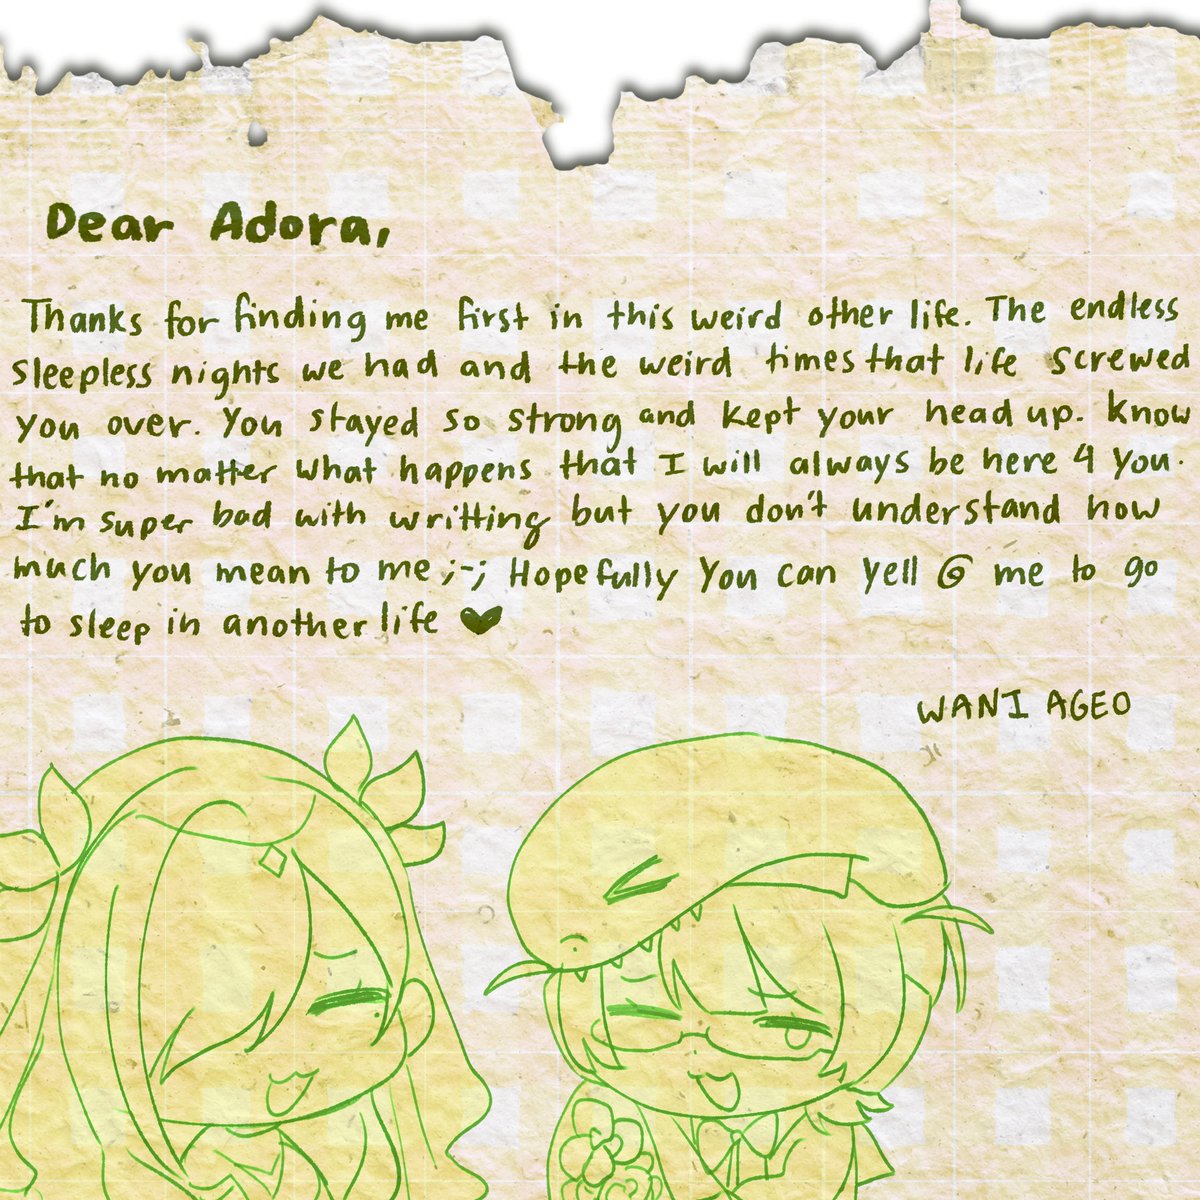 Dear Adora,
Thanks for finding me first in this weird other life. The endless
sleepless nights we had and the weird times that life screwed
you over. You stayed so strong and kept your head up. Know
that no matter what happens that I will always be here 4 you.
I'm super bad with writting but you don't understand how
much you mean to me ;-; Hopefully you can yell @ me to go
to sleep in another life ♥
WANI AGEO